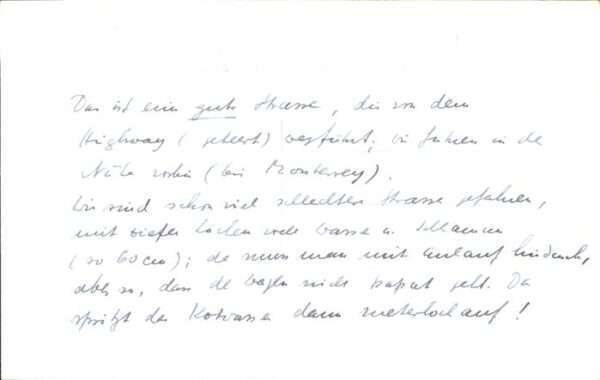 Das ist eine gute Strasse, die von dem
Highway (geteert) wegführt; wir fuhren in der
Nähe vorbei (bei Monterrey).
Wir sind schon viel schlechtere Strasse gefahren,
mit tiefen Löchern voll Wasser u. Schlamm
(so 60 cm); da muss man mit Anlauf hindurch,
aber so, dass der Wagen nicht kaputt geht. Da
spritzt das Kotwasser dann meterhoch auf!